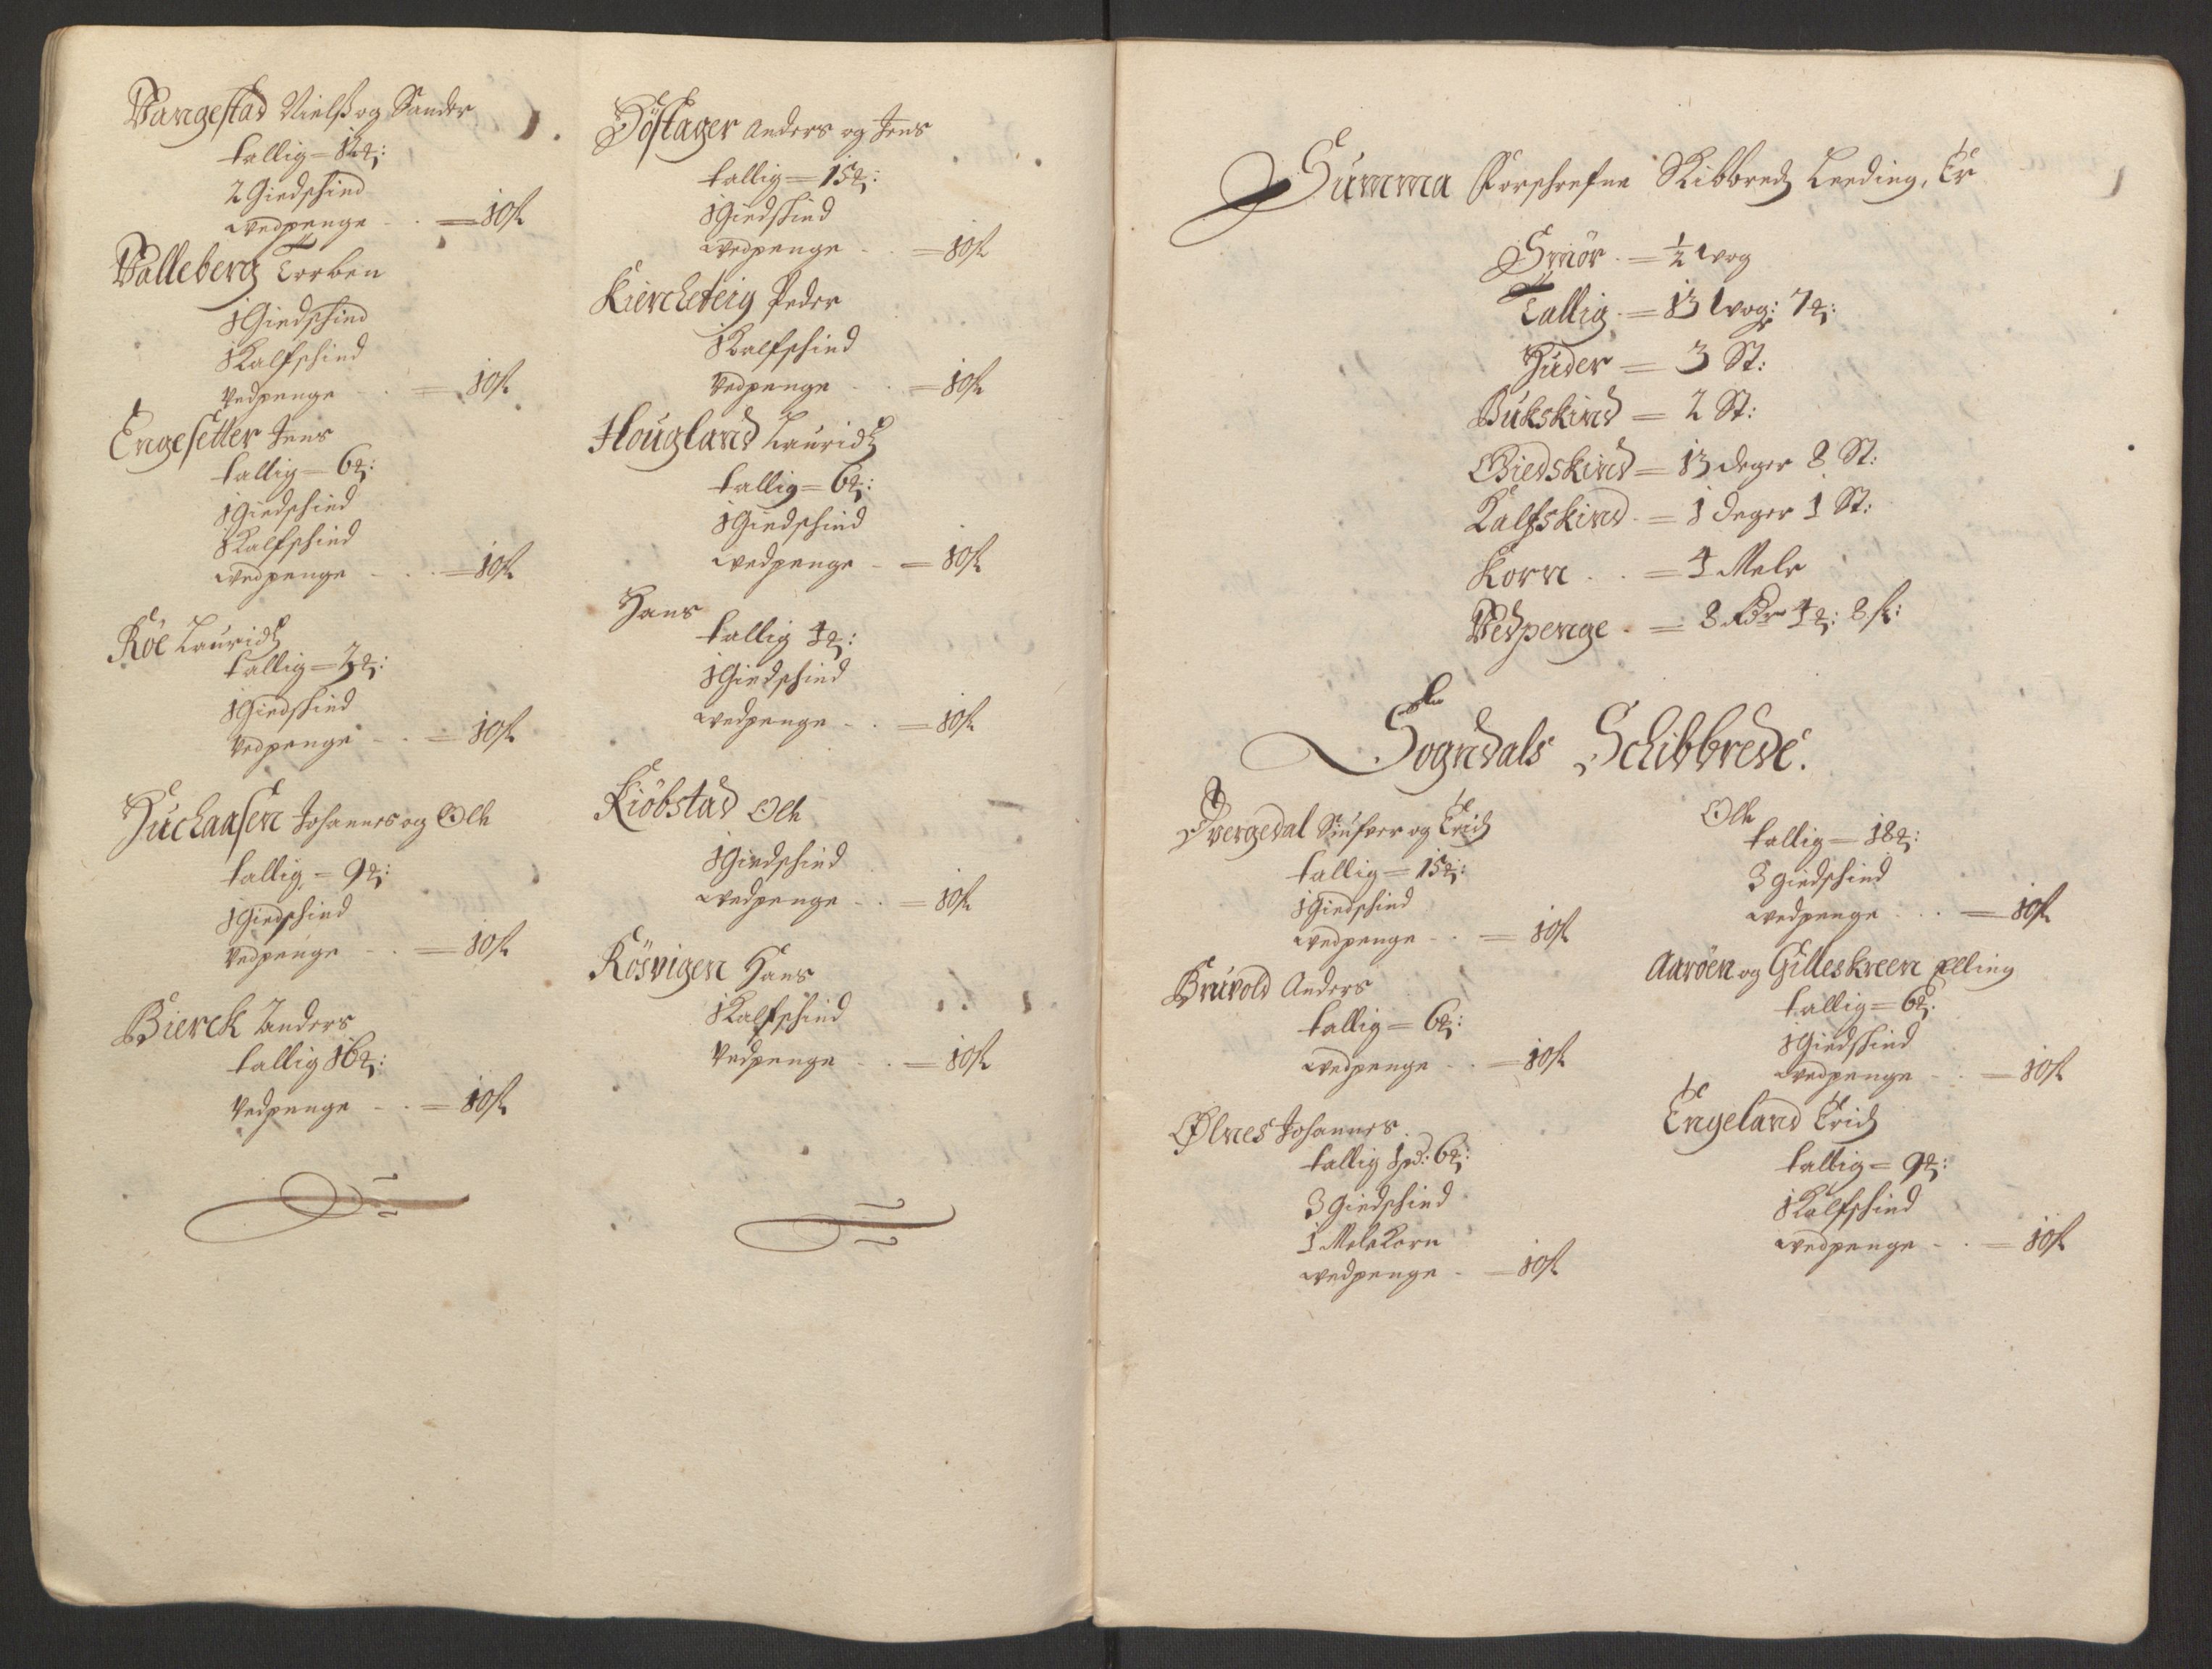 Vangestad Nielß og Sander
tallig = 12 ℔:
2 Giedschind
wedpenge - . = 10 ß
Valleberg Torben
1 Giedschind
1 Kalfschind
Vedpenge . = 10 ß
Engesetter Jens
tallig = 6 ℔:
1 Giedschind
1 Kalfschind
wedpenge - . . = 10 ß
Röe Lauridz
tallig = 3 ℔:
1 Giedschind
Vedpenge - . = 10 ß
Huchaasen Johannes og Ole
tallig = 9 ℔:
1 Giedschind
Vedpenge - . = 10 ß
Bierck Anders
tallig 16 ℔:
Vedpenge - . = 10 ß
Döstager Anders og Jens
tallig = 15 ℔:
1 Giedschind
wedpenge . = 10 ß
Kircheteig Peder
1 Kalfschind
Vedpenge . = 10 ß
Hougland Lauridz
tallig = 6 ℔:
1 Giedschind
wedpenge - = 10 ß
Hans
tallig 4 ℔:
1 Giedschind
wedpenge - . = 10 ß
Kiöbstad Ole
1 Giedschind
wedpenge . = 10 ß
Rösvigen Hans
1 Kalfschind
Vedpenge . = 10 ß
Summa Forschrefne Skibbredz Leeding, Er
Smör . = ½ wog
Tallig . = 13 wog: 7 ℔:
Huder = 3 St:
Bukskind = 2 St:
Giedskind = 13 deger 8 St:
Kalfskind . = 1 deger 1 St:
Korn . . = 4 Mele
Vedpenge . = 8 Rdr 4 ℔: 8 ß:
Sogndals Schibbrede.
Dvergedal Siufver og Erich
tallig = 15 ℔:
1 Giedschind
wedpenge - . = 10 ß
Bruvold Anders
tallig = 6 ℔:
wedpenge . = 10 ß
Ølnes Johannes
tallig 1 pd: 6 ℔:
3 Giedschind
1 Mele Korn
wedpenge . = 10 ß
Ole
tallig = 18 ℔:
3 giedschind
wedpenge . . = 10 ß
Aaröen og Gilleskreen Elling
tallig = 6 ℔:
1 Giedschind
wedpenge . = 10 ß
Engeland Erich
tallig = 9 ℔:
1 Kalfschind
wedpenge - . = 10 ß